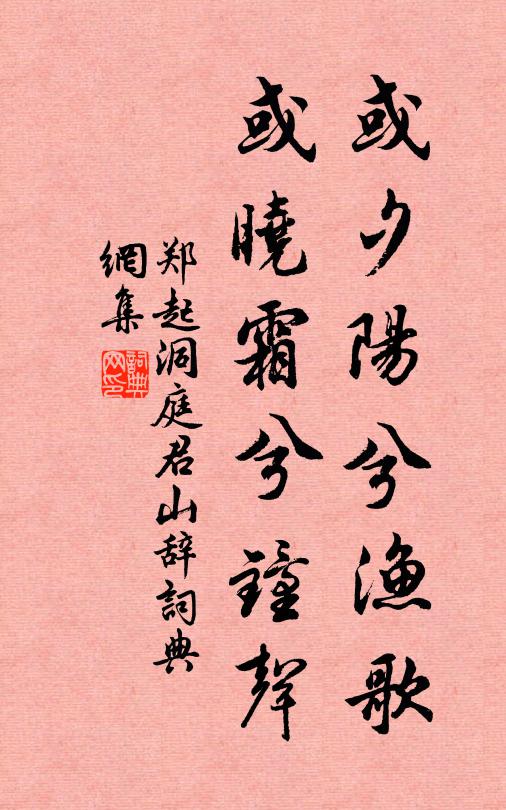 或夕陽兮漁歌
或曉霜兮鐘聲
郑起洞庭君山辞詞典
網集
詞典網印